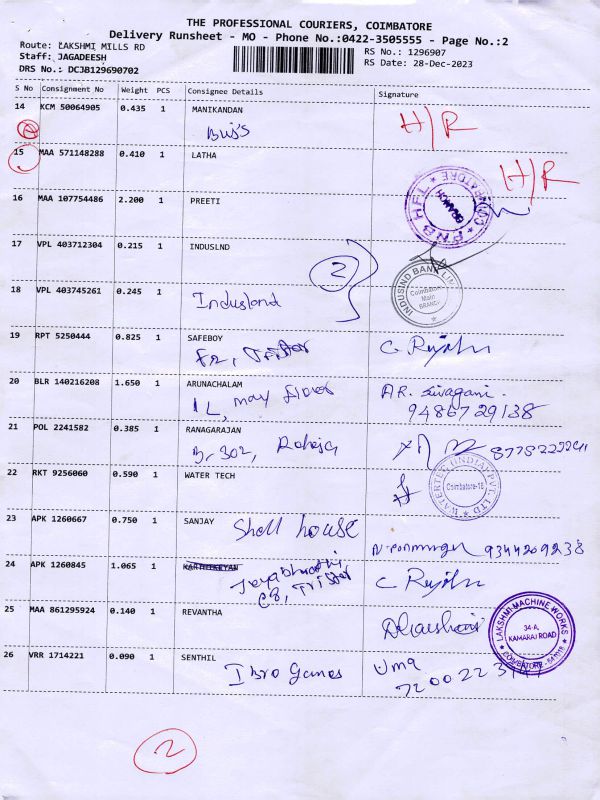 THE PROFESSIONAL COURIERS, COIMBATORE
Delivery Runsheet - MO - Phone No.:0422-3505555 - Page No.:2
Route: LAKSHMI MILLS RD
RS No.: 1296907
Staff: JAGADEESH
RS Date: 28-Dec-2023
DRS No.: DCJB129690702
S No Consignment No Weight PCS Consignee Details Signature
14 KCM 50064905 0.435 1 MANIKANDAN
H/R
15 MAA 571148288 0.410 1 LATHA
H/R
16 MAA 107754486 2.200 1 PREETI
PNB HFL BRANCH
17 VPL 403712304 0.215 1 INDUSLND
2
INDUSIND BANK
Coimbatore Main BRANCH
18 VPL 403745261 0.245 1
Indusland
19 RPT 5250444 0.825 1 SAFEBOY
Tristar
20 BLR 140216208 1.650 1 ARUNACHALAM
1L, may flower
AR. Sivagami
9486729138
21 POL 2241582 0.385 1 RANAGARAJAN
Br 302, Raheja
22 RKT 9256060 0.590 1 WATER TECH
WATERTEC (INDIA) PVT. LTD
Coimbatore-18
23 APK 1260667 0.750 1 SANJAY
Shell house
9344209238
24 APK 1260845 1.065 1 KARTHEEKEYAN
C8, Tristar
25 MAA 861295924 0.140 1 REVANTHA
LAKSHMI MACHINE WORKS
34-A,
KAMARAJ ROAD
COIMBATORE
26 VRR 1714221 0.090 1 SENTHIL
Games
Uma
2